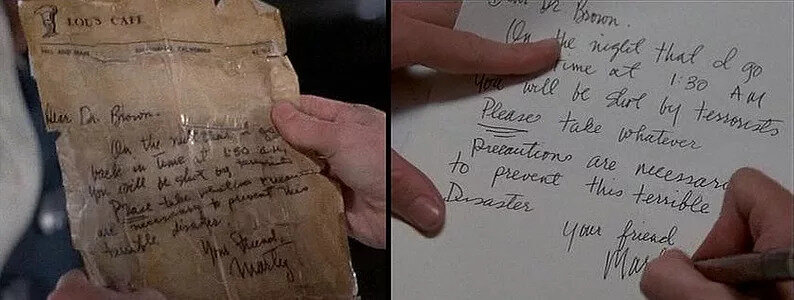 LOU'S CAFE
HILL VALLEY, CALIFORNIA
Dear Dr. Brown.
On the night that I go
back in time at 1:30 A.M.
You will be shot by terrorists
Please take whatever
are necessary to prevent this
terrible disaster.
Your friend
Marty
Dear Dr Brown.
On the night that I go
Time at 1:30 AM
You will be shot by terrorists
Please take whatever
Precautions are necessary
to prevent this terrible
Disaster
your friend
Mar